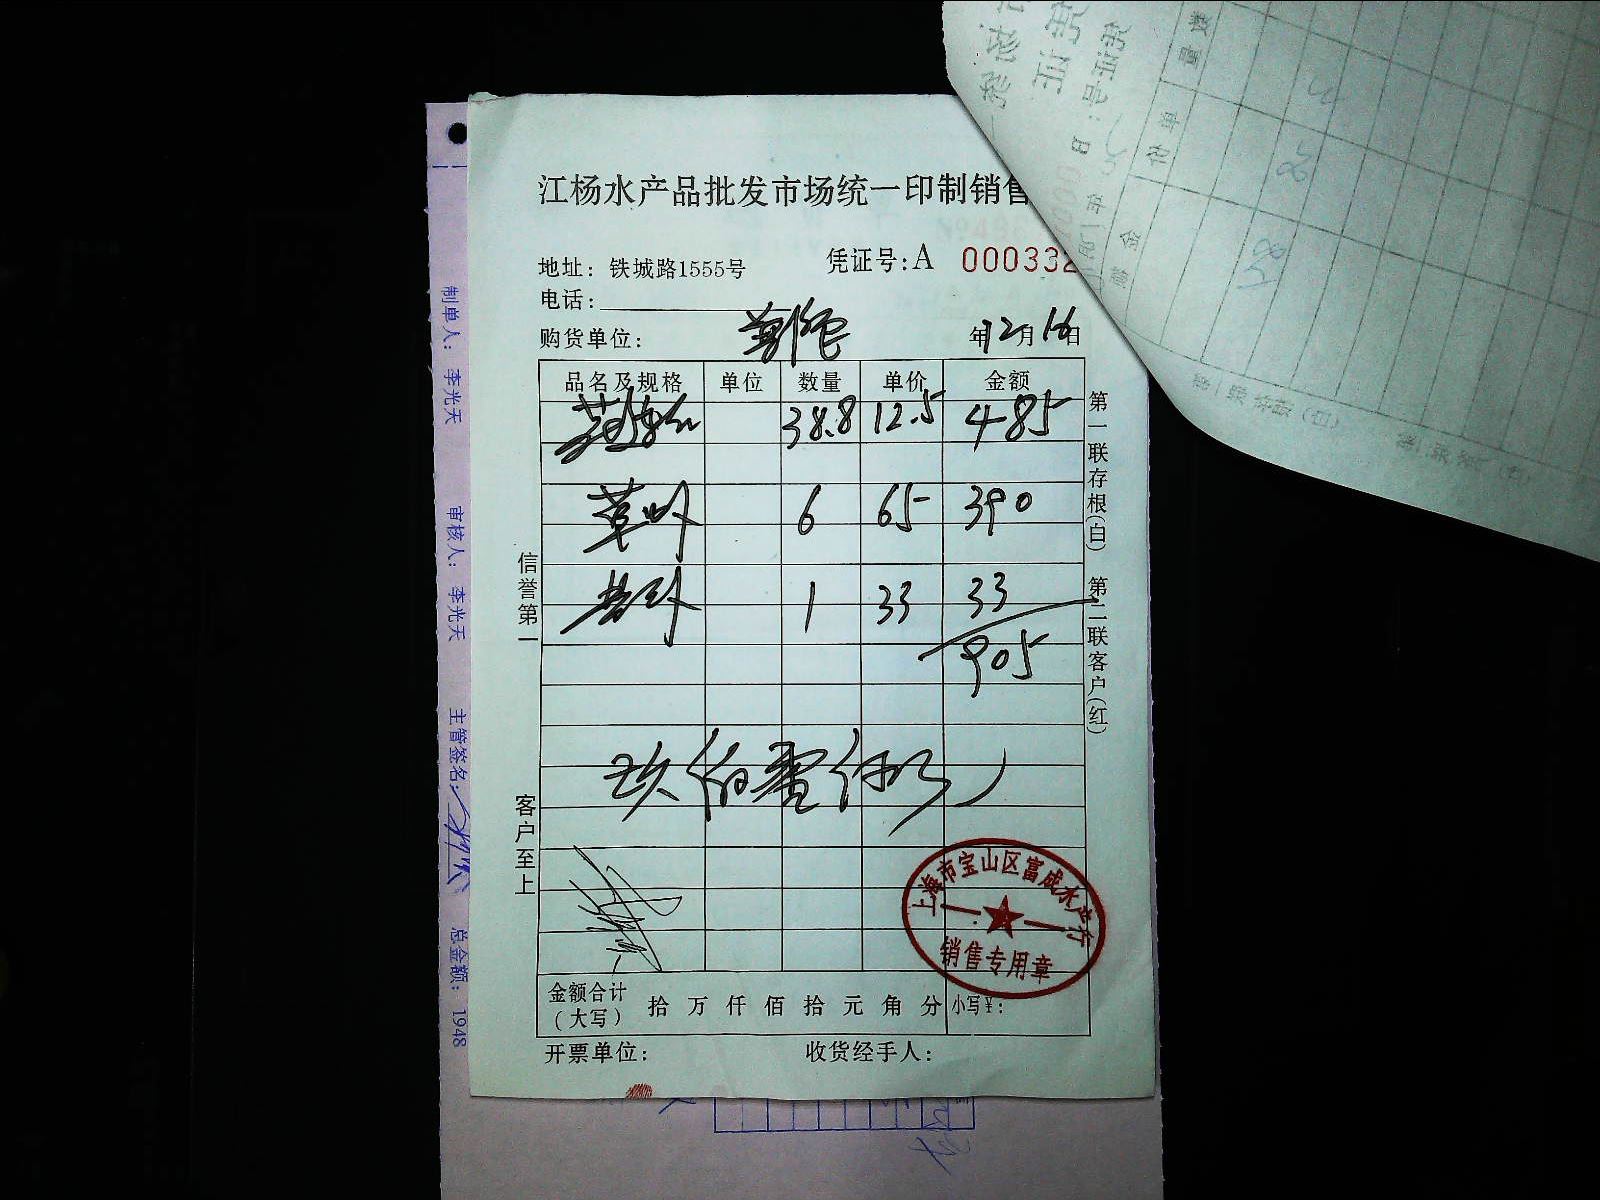 江杨水产品批发市场统一印制销售
地址：铁城路1555号
凭证号：A 000332
电话：
购货单位：
年12月16日
品名及规格 单位 数量 单价 金额
38.8 12.5 485
草虾 6 65 390
1 33 33
905
玖佰零伍元
金额合计（大写） 拾 万 仟 佰 拾 元 角 分 小写￥：
开票单位： 收货经手人：
信誉第一
客户至上
第一联存根（白） 第二联客户（红）
上海市宝山区富成水产行
销售专用章
制单人：李光天
审核人：李光天
主管签名：
总金额：1948